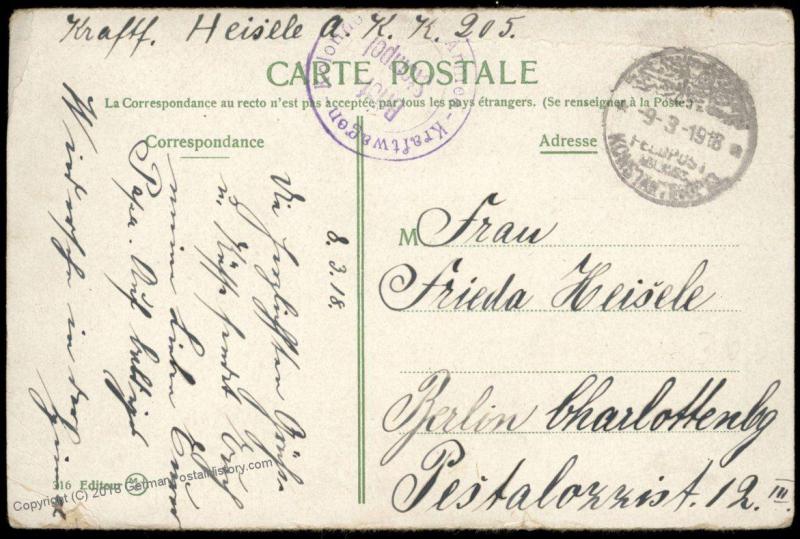 Kraftf. Heisele A. K. K. 205.
Armee-Kraftwagen Kolonne
Brief
Stempel
CARTE POSTALE
La Correspondance au recto n'est pas acceptée par tous les pays étrangers. (Se renseigner à la Poste)
Correspondance
Adresse
-9-3-1918
FELDPOST
KONSTANTINOPEL
8. 3. 18.
Die herzlichsten Grüße
u. Küsse sendet Euch
meine Lieben Euer
Papa. Auf baldiges
Wiedersehen in der
Heimat
M Frau
Frieda Heisele
Berlin Charlottenbg
Pestalozzist. 12 III.
316 Editeur
Copyright (C) 2018 GermanPostalHistory.com